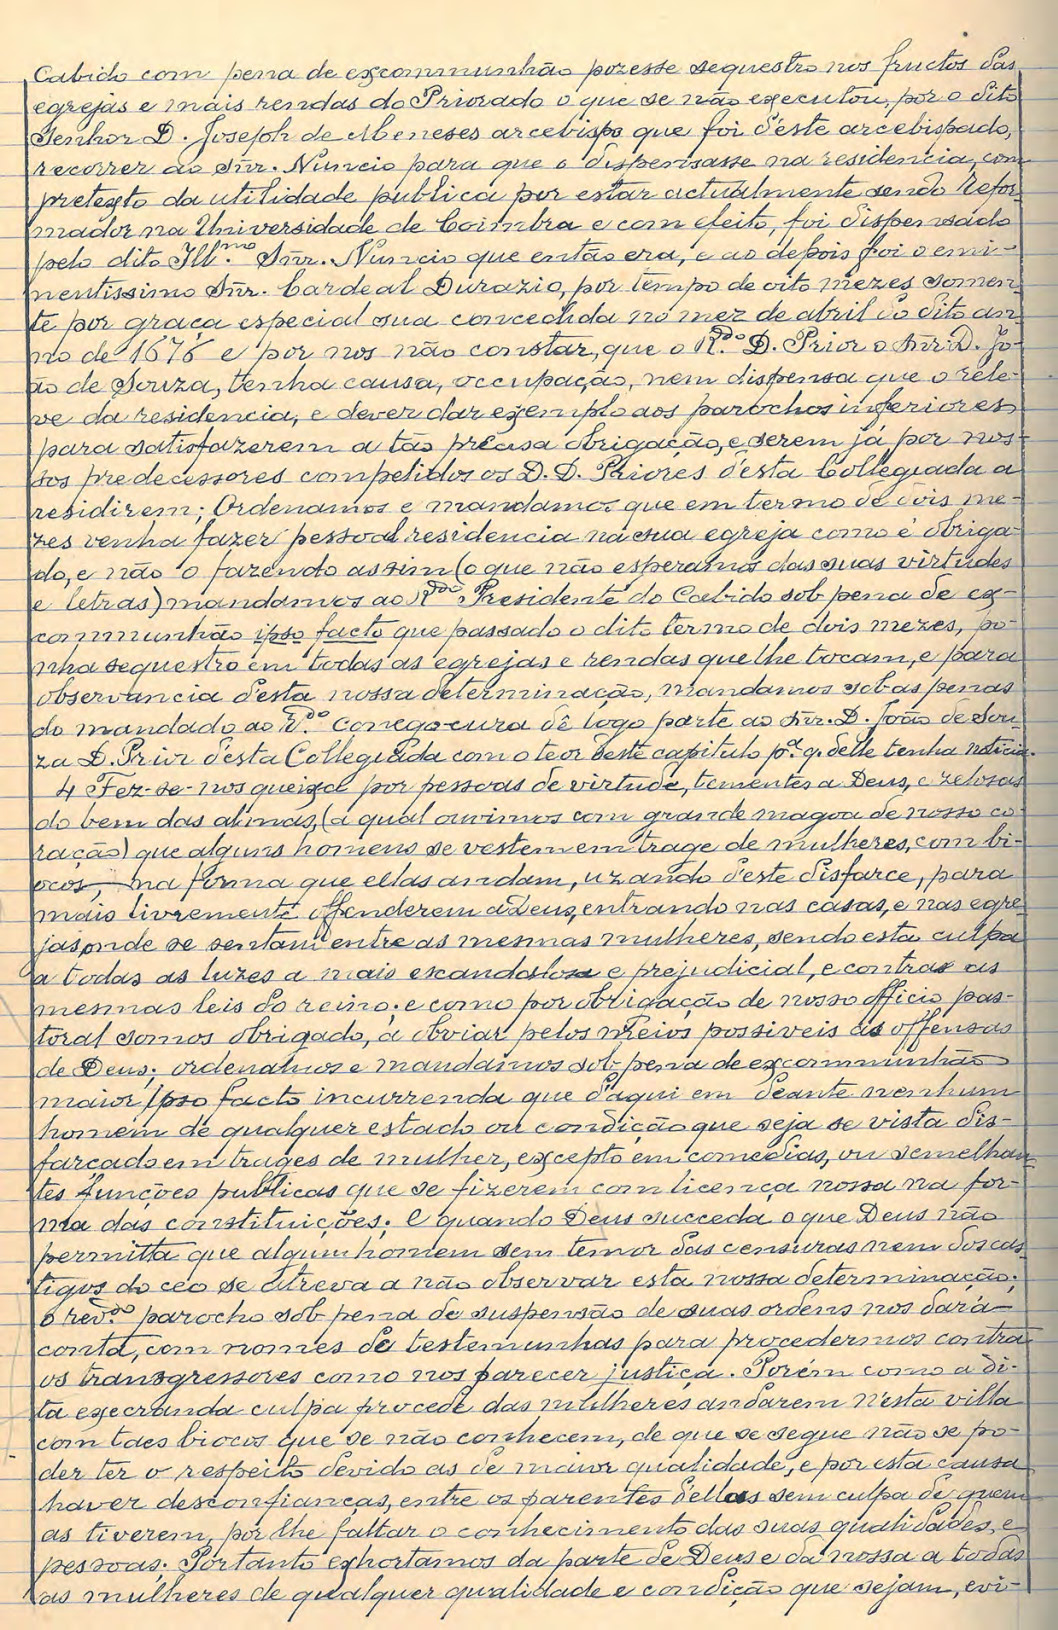 Cabido com pena de excommunhão pozesse sequestro nos fructos das
egrejas e mais rendas do Priorado o que se não executou, por o dito
Senhor D. Joseph de Meneses arcebispo que foi d'este arcebispado,
recorrer ao Snr. Nuncio para que o dispensasse na residencia, com
pretexto da utilidade publica por estar actualmente sendo Refor-
mador na Universidade de Coimbra e com efeito, foi dispensado
pelo dito Ill.mo Snr. Nuncio que então era, e ao depois foi o emi-
nentissimo Snr. Cardeal Durazio, por tempo de oito mezes somen-
te por graça especial sua concedida no mez de abril do dito an-
no de 1676 e por nos não constar, que o R.do D. Prior o Snr. D. Jo-
ão de Souza, tenha causa, occupação, nem dispensa que o rele-
ve da residencia, e dever dar exemplo aos parochos inferiores
para satisfazerem a tão precisa obrigação, e serem já por nos-
sos predecessores compelidos os D. D. Priores d'esta Collegiada a
residirem; Ordenamos e mandamos que em termo de dois me-
zes venha fazer pessoal residencia na sua egreja como é obriga-
do, e não o fazendo assim (o que não esperamos das suas virtudes
e letras) mandamos ao R.do Presidente do Cabido sob pena de ex-
communhão ipso facto que passado o dito termo de dois mezes, po-
nha sequestro em todas as egrejas e rendas que lhe tocam, e para
observancia d'esta nossa determinação, mandamos sob as penas
do mandado ao R.do conego-cura dê logo parte ao Snr. D. João de Sou-
za D. Prior d'esta Collegiada com o teor deste capitulo p.a q. delle tenha noticia.
4 Fez-se-nos queixa por pessoas de virtude, tementes a Deus, e zelosas
do bem das almas, (a qual ouvimos com grande magoa de nosso co-
ração) que alguns homens se vestem em trage de mulheres, com bi-
ocos, na forma que ellas andam, uzando d'este disfarce, para
mais livremente offenderem a Deus, entrando nas casas, e nas egre-
jas onde se sentam entre as mesmas mulheres, sendo esta culpa
a todas as luzes a mais escandalosa e prejudicial, e contra as
mesmas leis do reino; e como por obrigação de nosso officio pas-
toral somos obrigado, a obviar pelos meios possiveis ás offensas
de Deus; ordenamos e mandamos sob pena de excommunhão
maior ipso facto incurrenda que d'aqui em deante nenhum
homem de qualquer estado ou condição que seja se vista dis-
farçado em trages de mulher, excepto em comedias, ou semelhan-
tes funções publicas que se fizerem com licença nossa na for-
ma das constituições; E quando Deus succeda o que Deus não
permitta que algum homem sem temor das censuras nem dos cas-
tigos do ceo se atreva a não observar esta nossa determinação;
o rev.do parocho sob pena de suspensão de suas ordens nos dará
conta, com nomes de testemunhas para procedermos contra
os transgressores como nos parecer justiça. Porém como a di-
ta execranda culpa procede das mulheres andarem n'esta villa
com taes biocos que se não conhecem, de que se segue não se po-
der ter o respeito devido as de maior qualidade, e por esta causa
haver desconfianças, entre os parentes d'ellas sem culpa de quem
as tiverem, por lhe faltar o conhecimento das suas qualidades, e
pessoas; Portanto exhortamos da parte de Deus e da nossa a todas
as mulheres de qualquer qualidade e condição que sejam, evi-